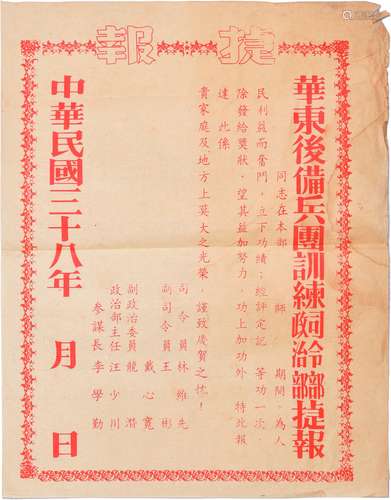 捷報
華東後備兵團訓練司令部政治部捷報
同志在本部 師 期間，為人
民利益而奮鬥，立下功績；經評定記 等功一次，
除發給獎狀，望其益加努力，功上加功外，特此報
達，此係
貴家庭及地方上莫大之光榮，謹致慶賀之忱！
司令員林維先
副司令員王 彬
戴心寬
副政治委員龍 潛
政治部主任汪少川
參謀長李學勤
中華民國三十八年 月 日